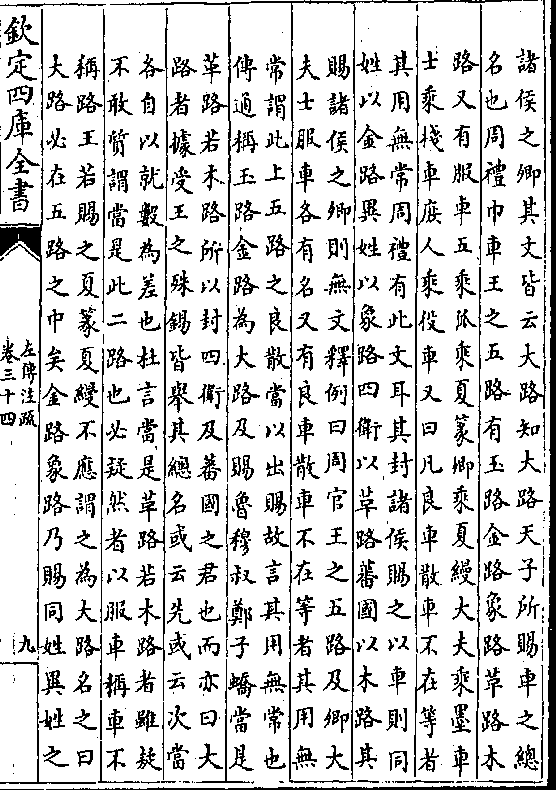 諸侯之卿其文皆云大路知大路天子所賜車之總
名也周禮巾車王之五路有玉路金路象路革路木
路又有服車五乘孤乘夏篆卿乘夏縵大夫乘墨車
士乘棧車庻人乘役車又曰凡良車散車不在等者
其用無常周禮有此文耳其封諸侯賜之以車則同
姓以金路異姓以象路四衛以革路蕃國以木路其
賜諸侯之卿則無文釋例曰周官王之五路及卿大
夫士服車各有名又有良車散車不在等者其用無
常謂此上五路之良散當以出賜故言其用無常也
傳通稱玉路金路為大路及賜魯穆叔鄭子蟜當是
革路若木路所以封四衛及蕃國之君也而亦曰大
路者據受王之殊錫皆舉其總名或云先或云次當
各自以就數為差也杜言當是革路若木路者雖疑
不敢質謂當是此二路也必疑然者以服車稱車不
稱路王若賜之夏篆夏縵不應謂之為大路名之曰
大路必在五路之中矣金路象路乃賜同姓異姓之
欽定四庫全書
左傳注疏
卷三十四
九